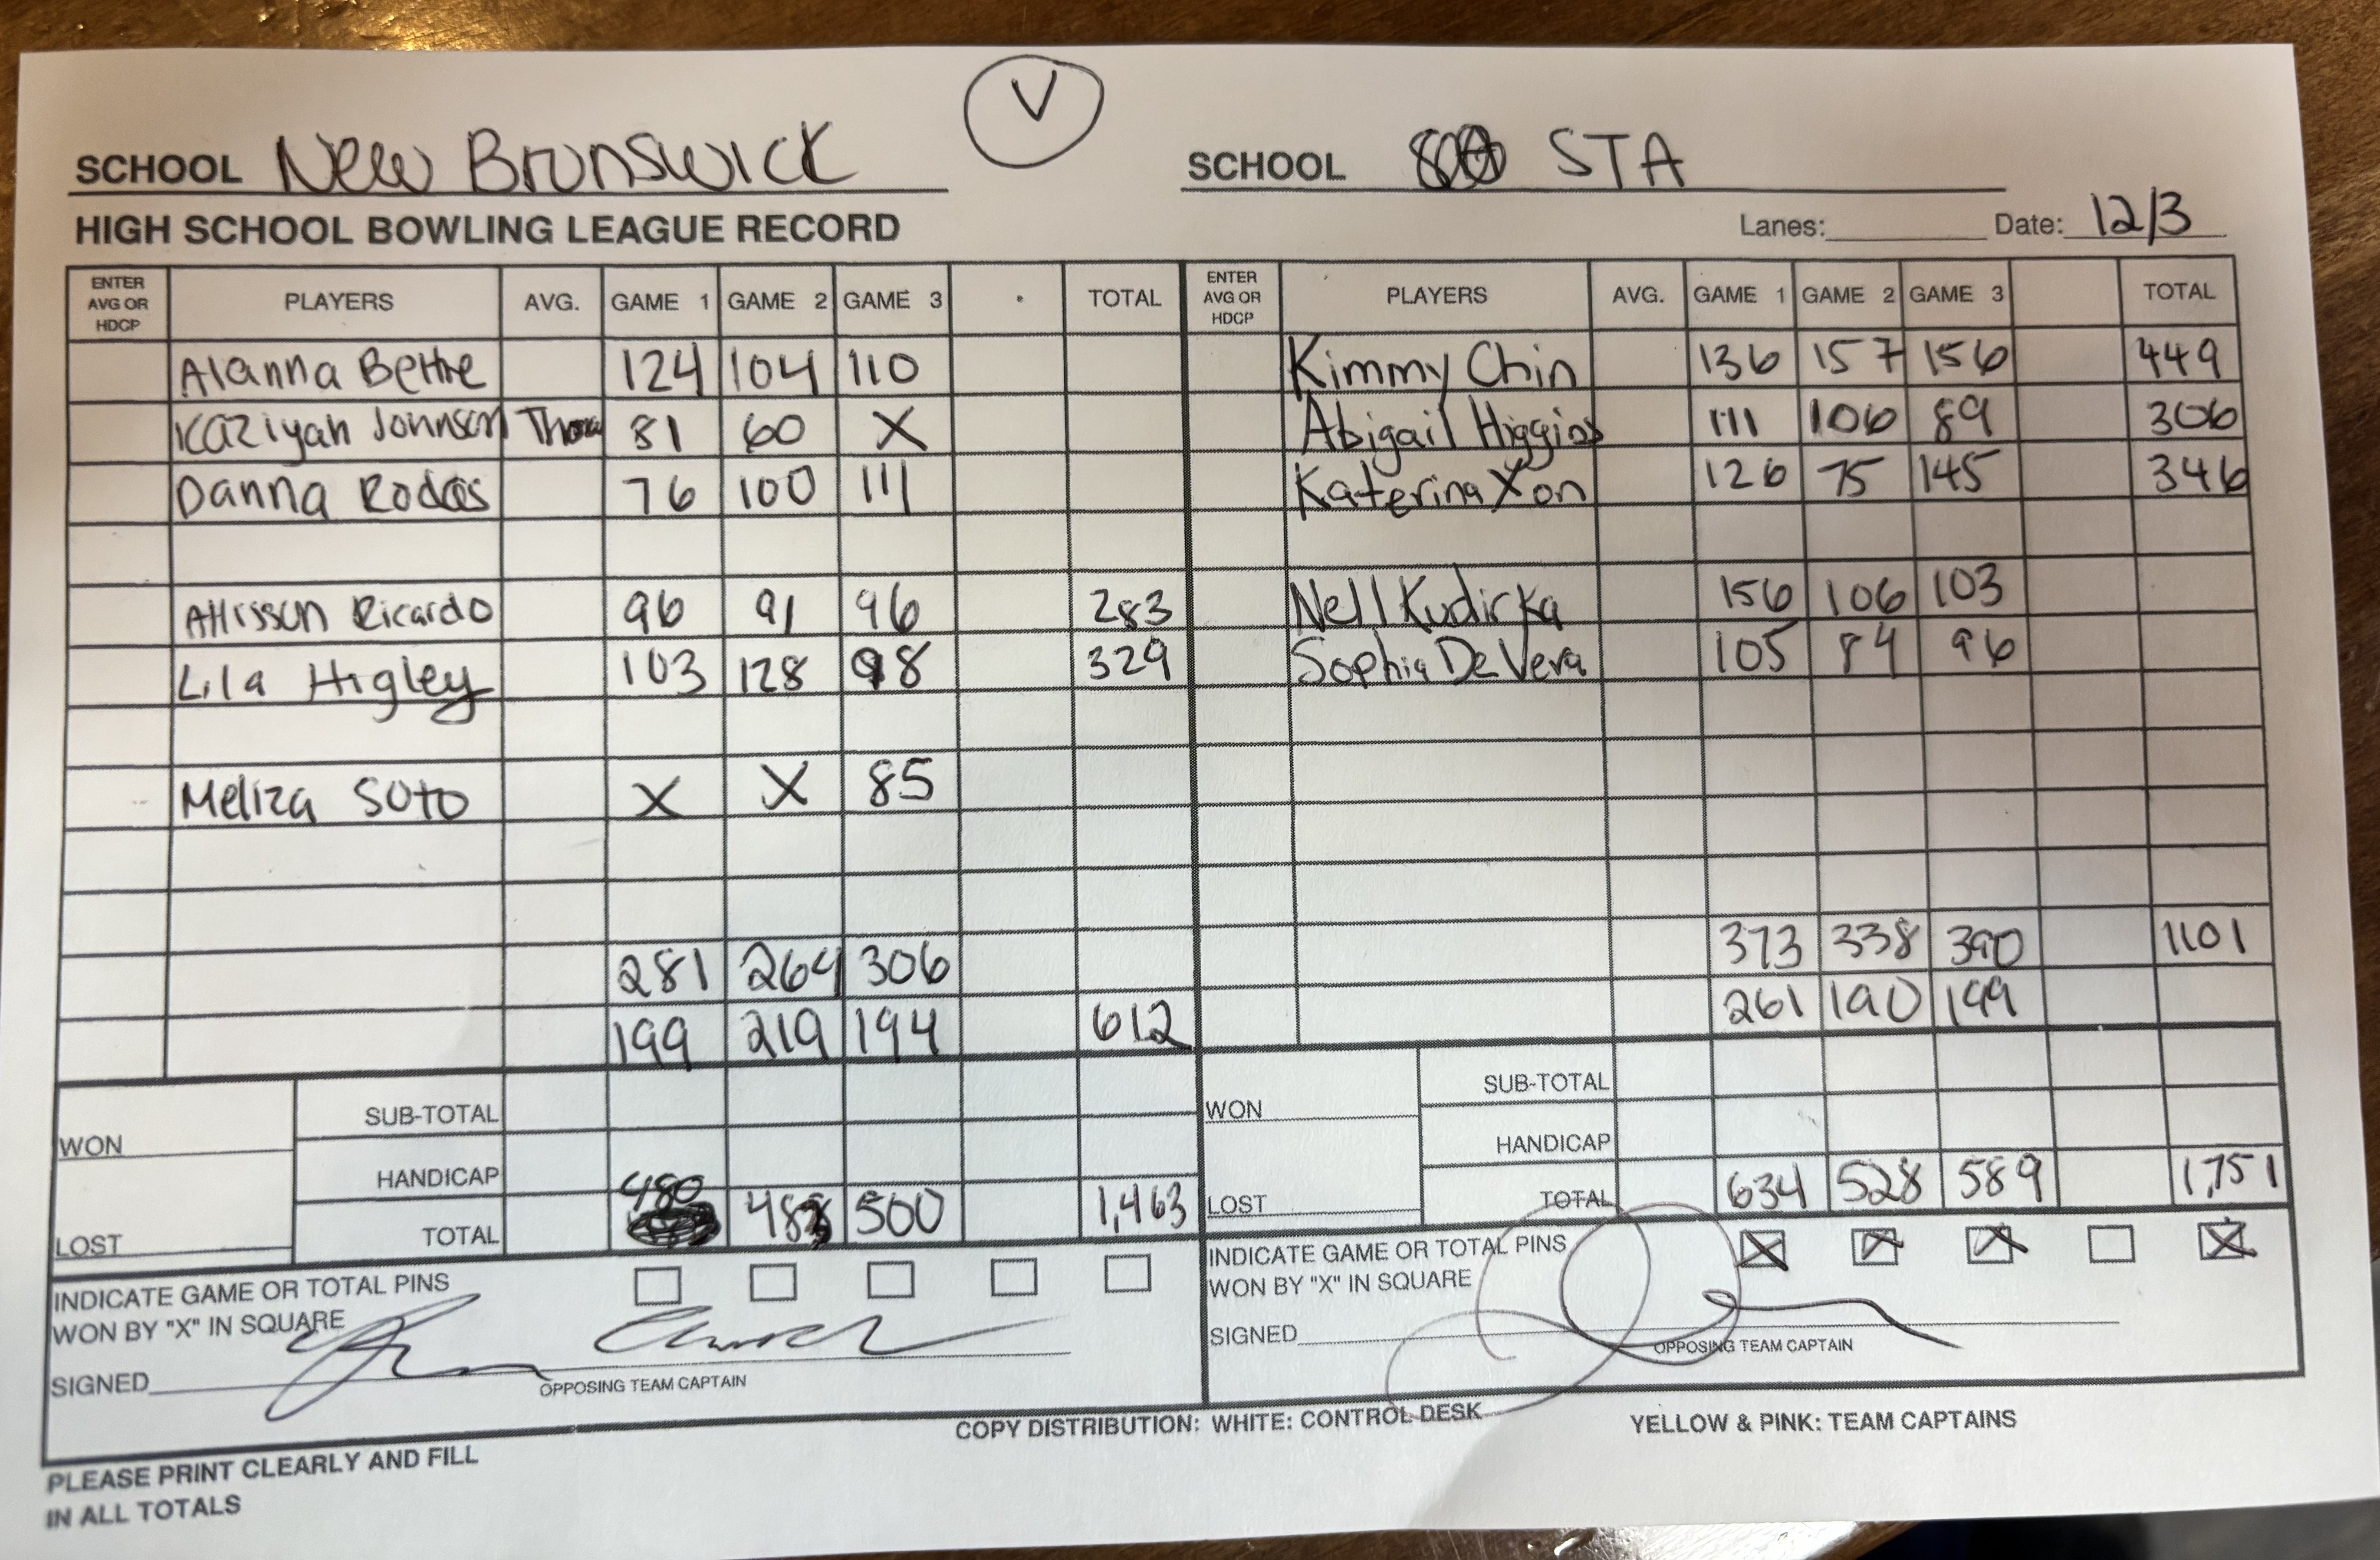 V
SCHOOL New Brunswick SCHOOL STA
HIGH SCHOOL BOWLING LEAGUE RECORD Lanes: Date: 12/3
ENTER AVG OR HDCP PLAYERS AVG. GAME 1 GAME 2 GAME 3 TOTAL ENTER AVG OR HDCP PLAYERS AVG. GAME 1 GAME 2 GAME 3 TOTAL
Alanna Bethe 124 104 110 Kimmy Chin 136 157 156 449
Kaziyah Johnson 81 60 X Abigail Higgins 111 106 89 306
Danna Rodas 76 100 111 Katerina Xon 126 75 145 346
Allisson Ricardo 96 91 96 283 Nell Kudirka 156 106 103
Lila Higley 103 128 98 329 Sophia De Vera 105 84 96
Meliza Soto X X 85
281 264 306 373 338 390 1101
199 219 194 612 261 190 199
SUB-TOTAL SUB-TOTAL
WON WON
HANDICAP HANDICAP
LOST TOTAL 480 483 500 1,463 LOST TOTAL 634 528 589 1,751
INDICATE GAME OR TOTAL PINS X X X X INDICATE GAME OR TOTAL PINS
WON BY "X" IN SQUARE WON BY "X" IN SQUARE
SIGNED SIGNED
OPPOSING TEAM CAPTAIN OPPOSING TEAM CAPTAIN
COPY DISTRIBUTION: WHITE: CONTROL DESK YELLOW & PINK: TEAM CAPTAINS
PLEASE PRINT CLEARLY AND FILL
IN ALL TOTALS